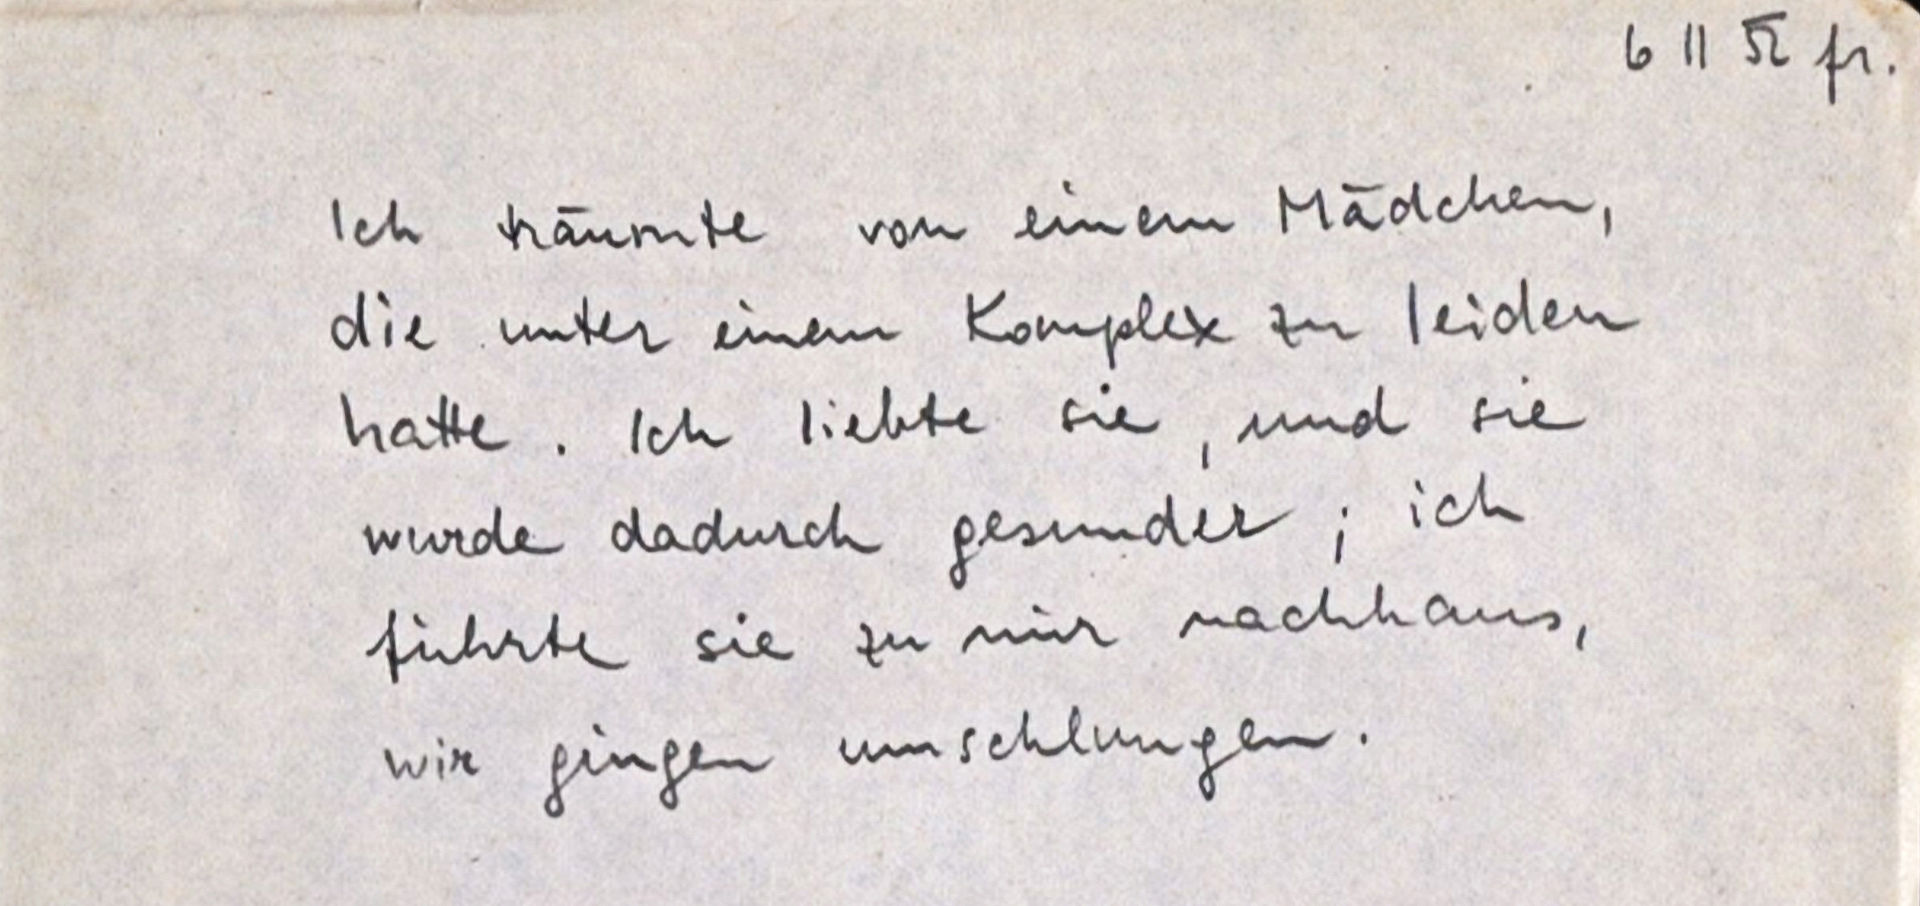 6 11 52 fr.
Ich träumte von einem Mädchen,
die unter einem Komplex zu leiden
hatte. Ich liebte sie, und sie
wurde dadurch gesunder; ich
führte sie zu mir nachhaus,
wir gingen umschlungen.